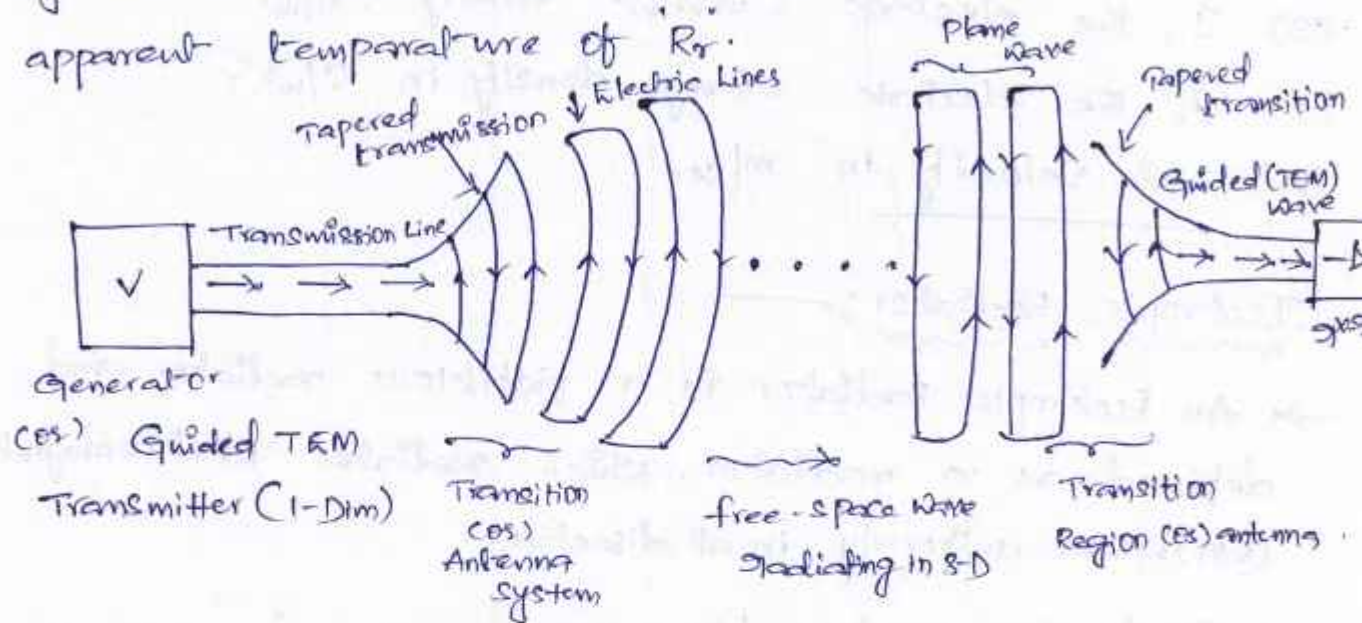 apparent temparature of Rr.
Plane
wave
Tapered
transition
Electric Lines
Tapered
transmission
Guided (TEM)
wave
Transmission Line
V
Generator
(or) Guided TEM
Transmitter (1-Dim)
Transition
(or)
Antenna
system
free-space wave
radiating in 3-D
Transition
Region (or) antenna.